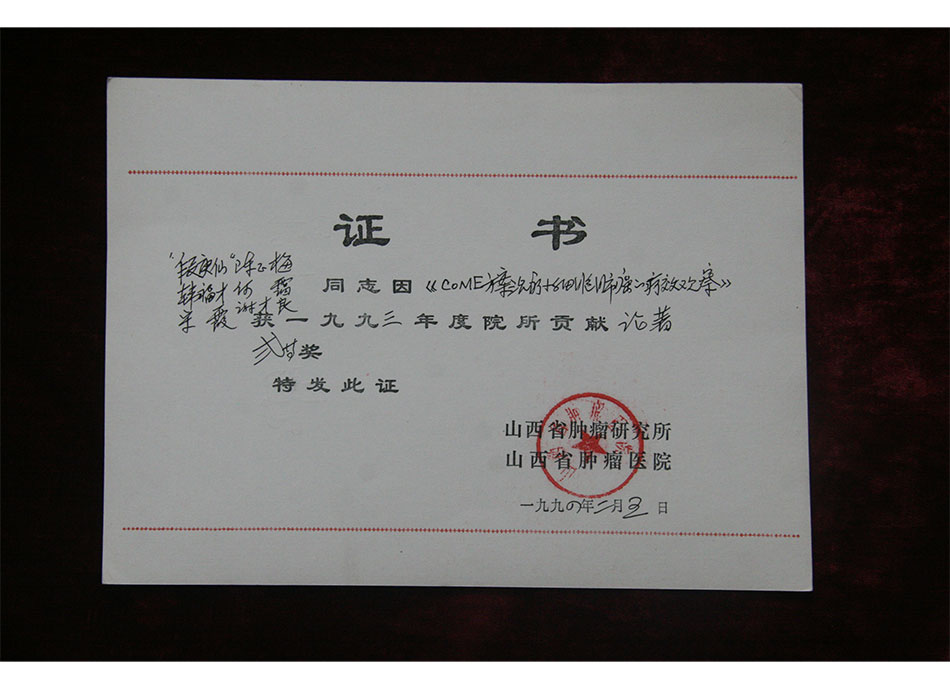 证书
陈正梅
韩福才 何霭
宋霞 谢才良
同志因《COME方案治疗小细胞肺癌的疗效观察》
获一九九三年度院所贡献论著
弍等奖
特发此证
山西省肿瘤研究所
山西省肿瘤医院
一九九四年二月五日